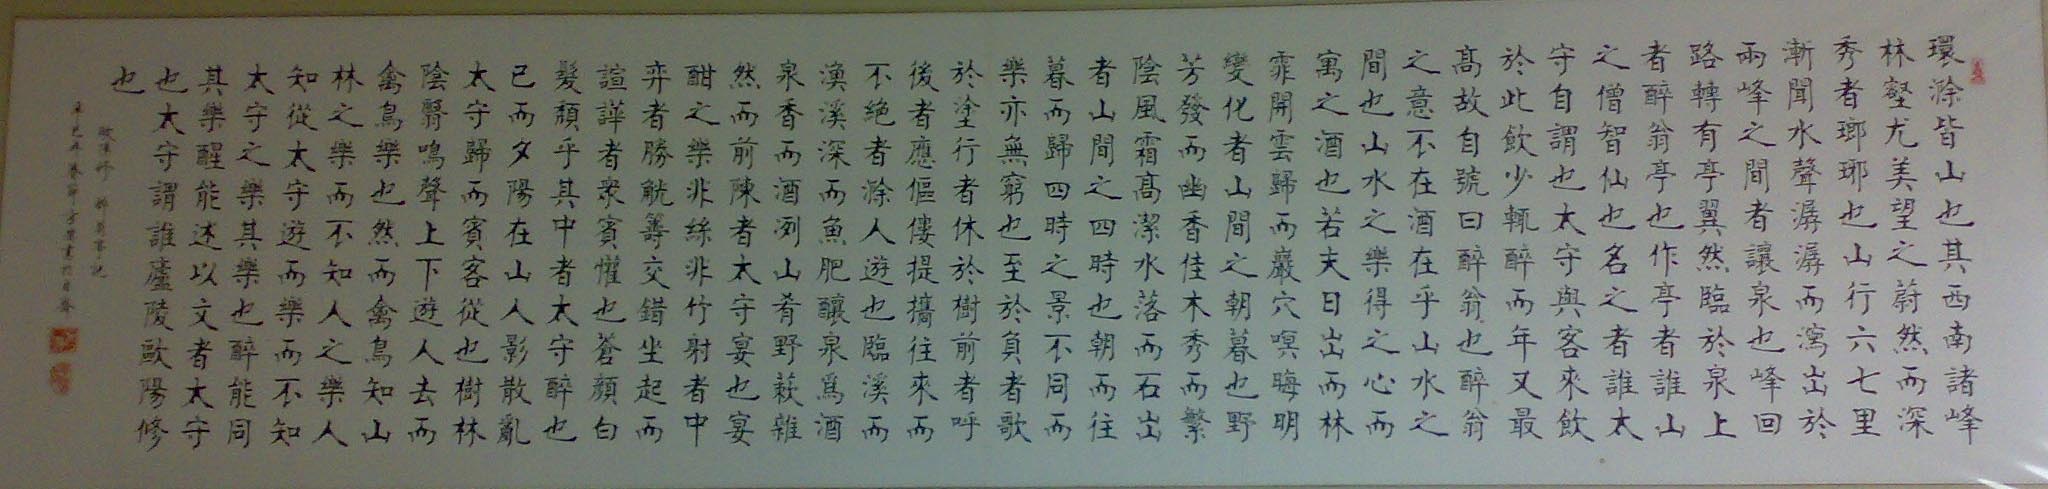 環滁皆山也其西南諸峰
林壑尤美望之蔚然而深
秀者瑯琊也山行六七里
漸聞水聲潺潺而瀉出於
兩峰之間者讓泉也峰回
路轉有亭翼然臨於泉上
者醉翁亭也作亭者誰山
之僧智仙也名之者誰太
守自謂也太守與客來飲
於此飲少輒醉而年又最
高故自號曰醉翁也醉翁
之意不在酒在乎山水之
間也山水之樂得之心而
寓之酒也若夫日出而林
霏開雲歸而巖穴暝晦明
變化者山間之朝暮也野
芳發而幽香佳木秀而繁
陰風霜高潔水落而石出
者山間之四時也朝而往
暮而歸四時之景不同而
樂亦無窮也至於負者歌
於塗行者休於樹前者呼
後者應傴僂提攜往來而
不絕者滁人遊也臨溪而
漁溪深而魚肥釀泉爲酒
泉香而酒洌山肴野蔌雜
然而前陳者太守宴也宴
酣之樂非絲非竹射者中
弈者勝觥籌交錯坐起而
諠譁者衆賓懽也蒼顏白
髮頹乎其中者太守醉也
已而夕陽在山人影散亂
太守歸而賓客從也樹林
陰翳鳴聲上下遊人去而
禽鳥樂也然而禽鳥知山
林之樂而不知人之樂人
知從太守遊而樂而不知
太守之樂其樂也醉能同
其樂醒能述以文者太守
也太守謂誰廬陵歐陽修
也
歐陽修 醉翁亭記